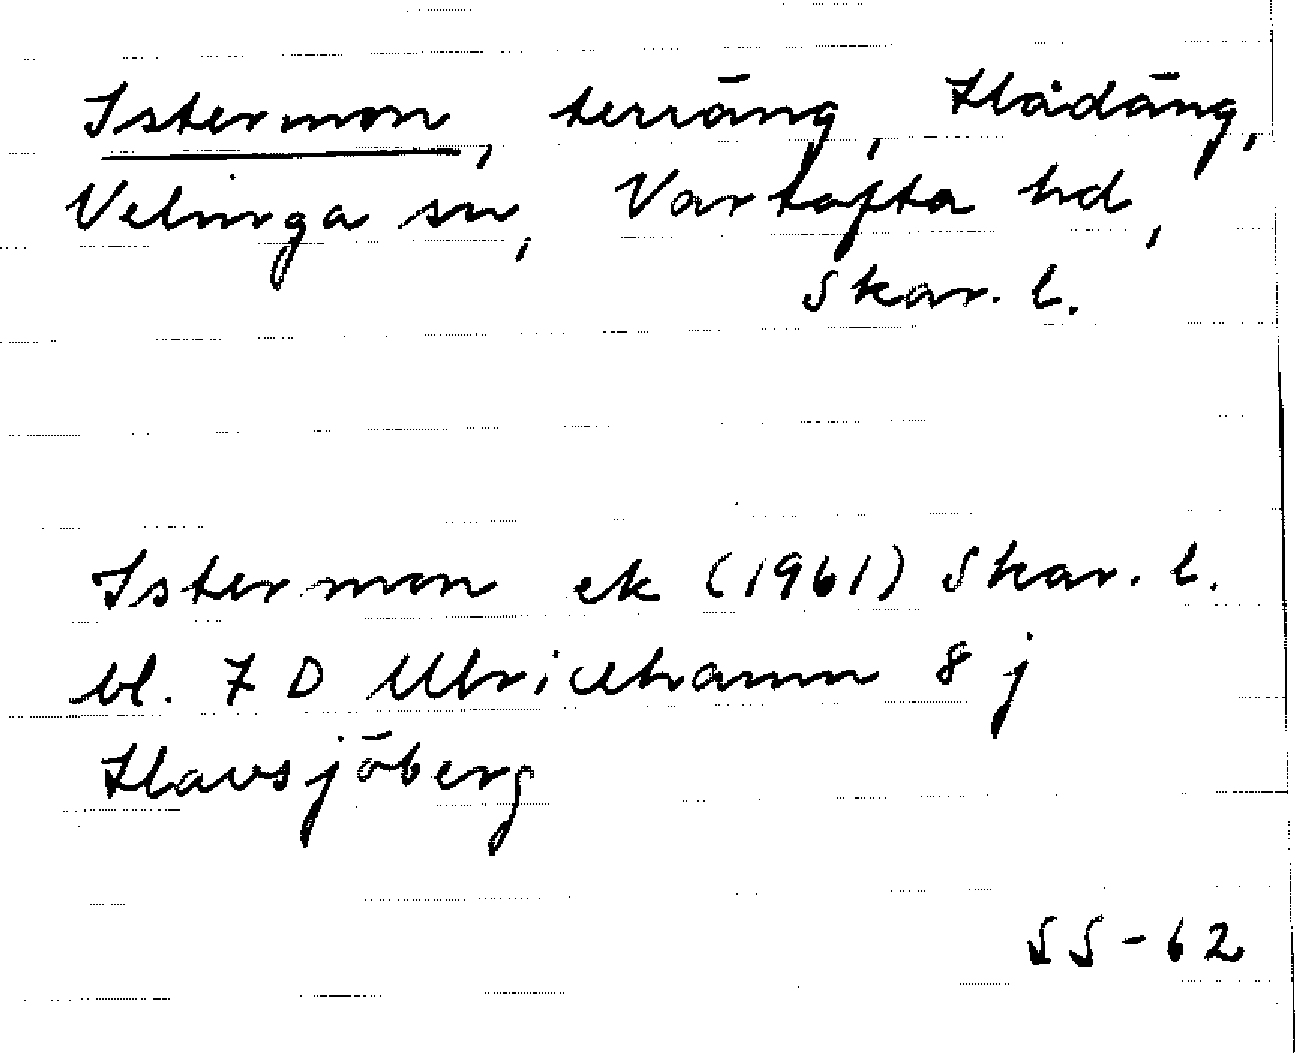 Istermon, terräng, Hådäng,
Velinga sn, Vartofta hd,
Skar. l.
Istermon ek (1961) Skar. l.
bl. 7 D Ulricehamn 8 j
Havsjöberg
SS-62